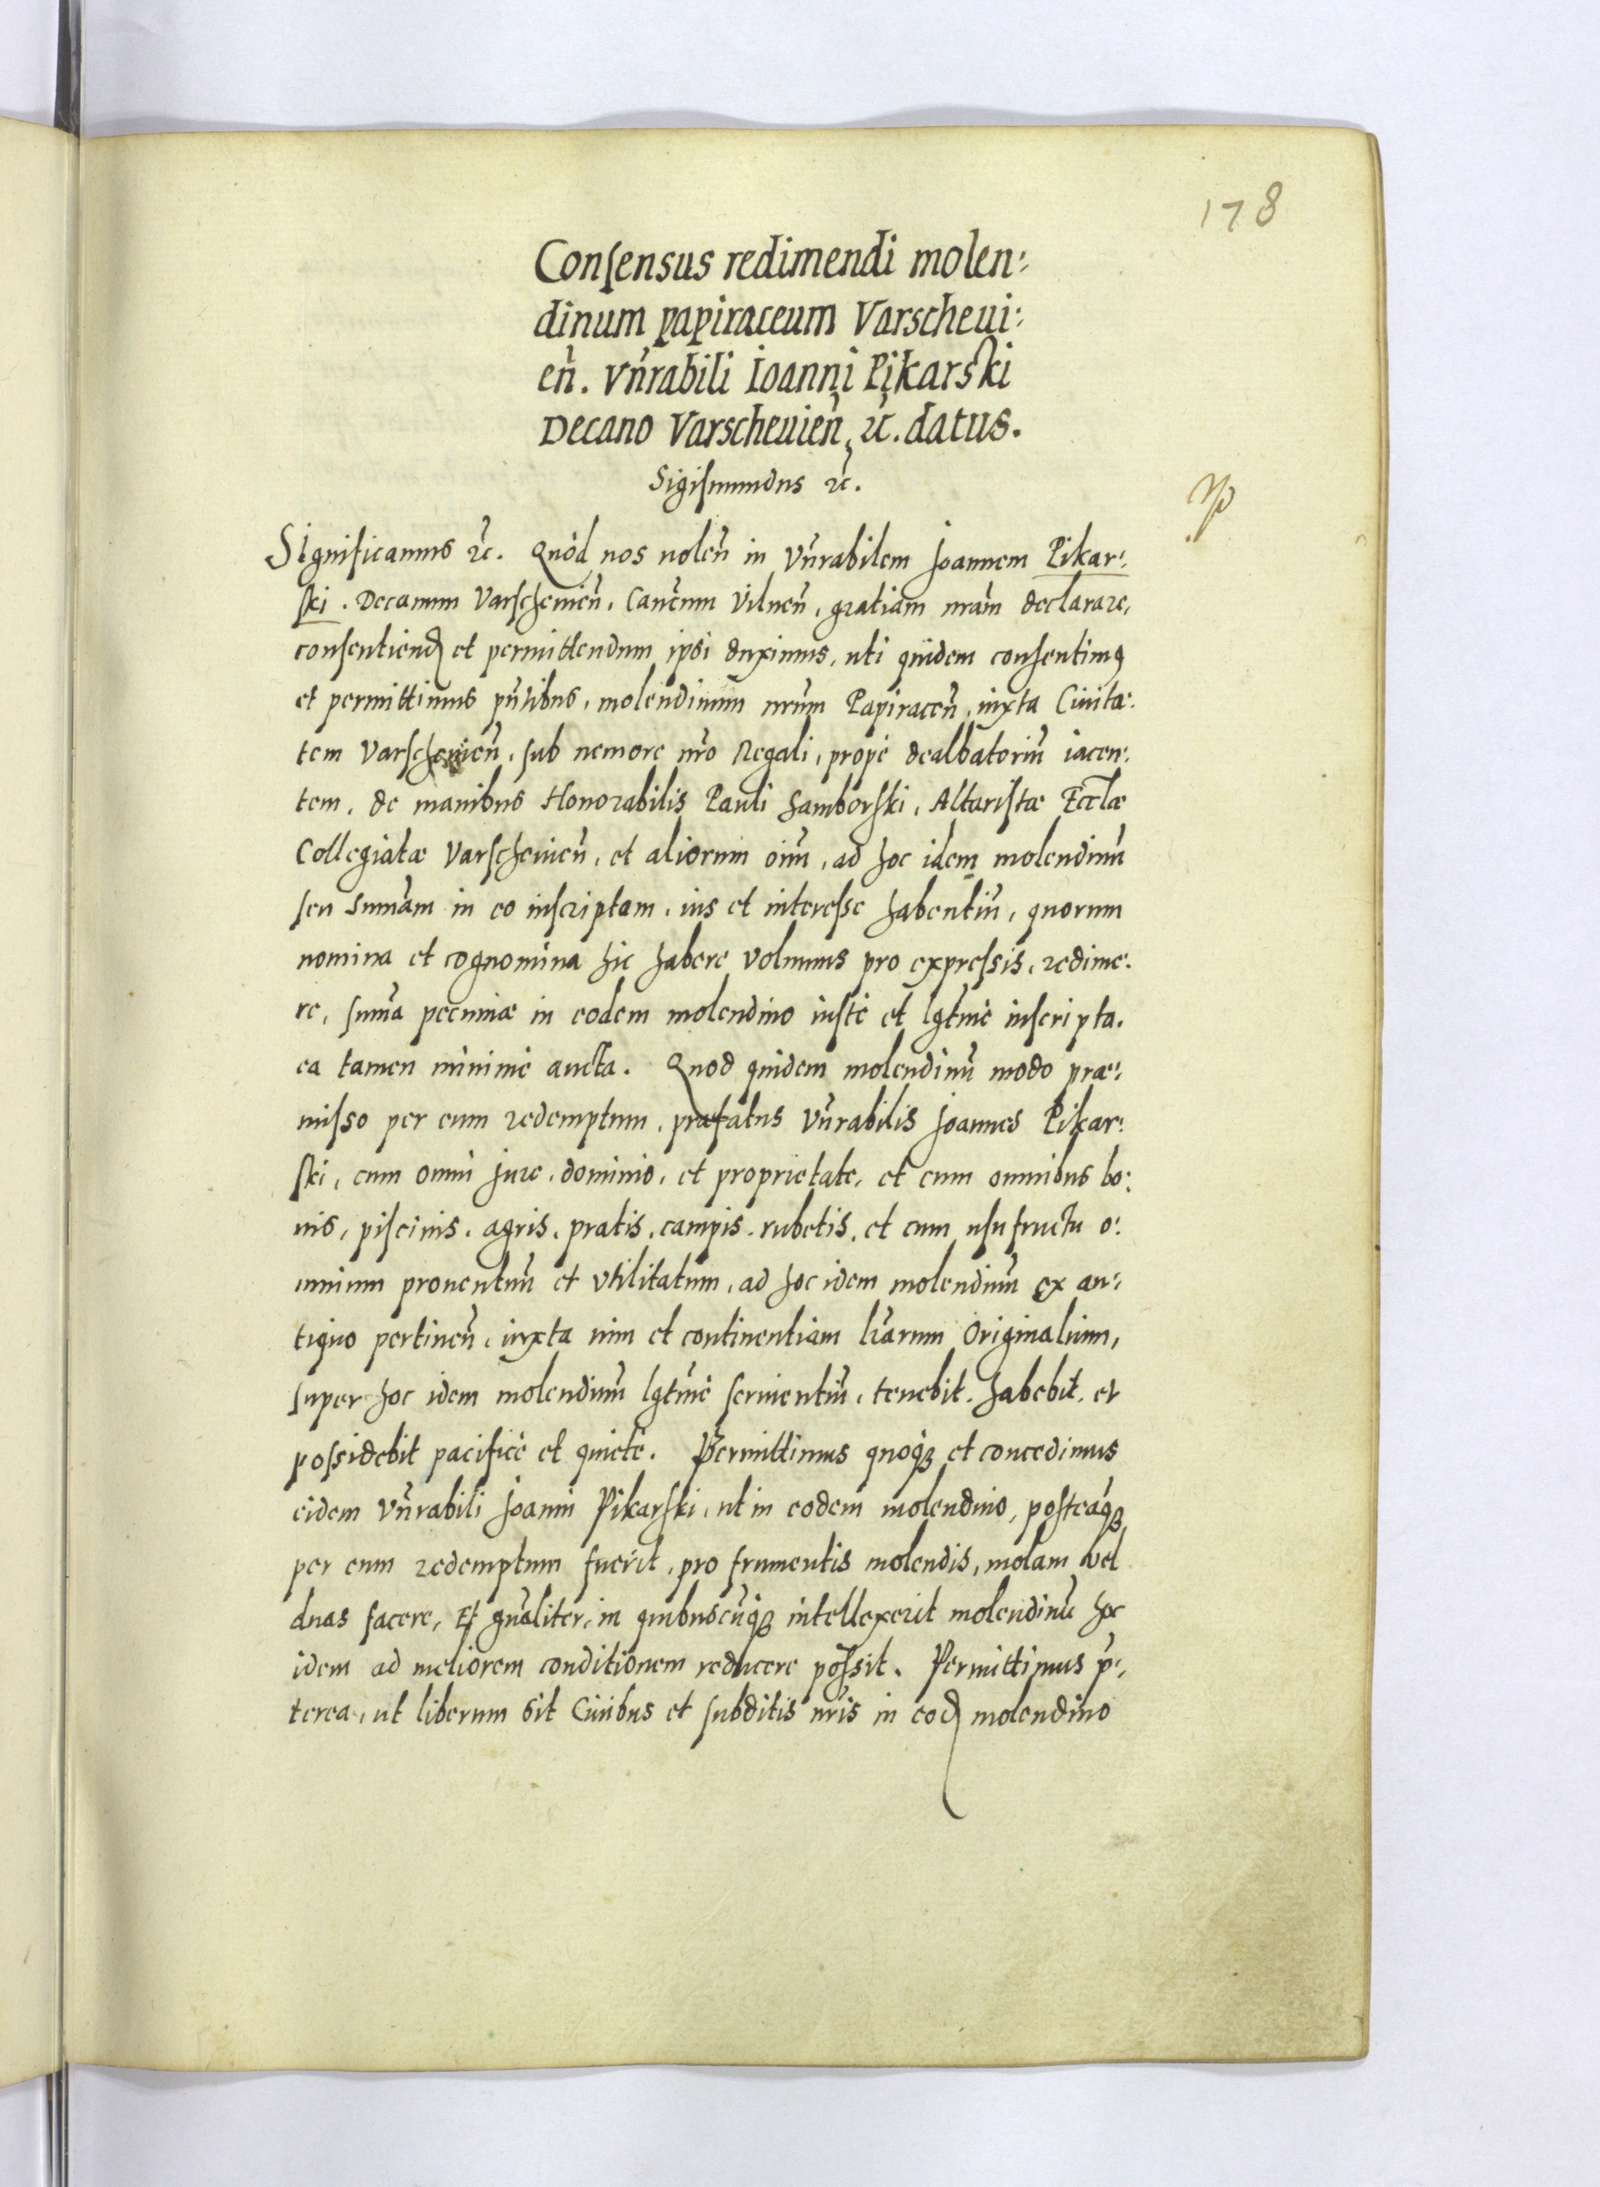 178
Consensus redimendi molen:
dinum papiraceum Varscheui:
eñ. Vñrabili Ioanni Pikarski
Decano Varscheuieñ, &c̃. datus.
Sigismundus &c̃.
Significamus &c̃. Quòd nos uoleñ in Vñrabilem Joannem Pikar:
ski. Decanum Varscheuieñ, Canc̃um Vilneñ, gratiam nr̃am declarare,
consentiend et permittendum ipsi duximus, uti quidem consentimꝰ
et permittimus pñtibus, molendinum nr̃um Papiraceũ, iuxta Ciuita:
tem Varscheuieñ, sub nemore nr̃o Regali, propè dealbatoriũ iacen:
tem, de manibus Honorabilis Pauli Samborski, Altaristæ Eccl̃æ
Collegiatæ Varscheuieñ, et aliorum oĩm, ad hoc idem molendinũ
seu Sum̃am in eo inscriptam, ius et interesse habentiũ, quorum
nomina et cognomina hic habere volumus pro expressis, redime:
re, sum̃a pecuniæ in eodem molendino iustè et lgt̃mè inscripta,
ea tamen minimè aucta. Quod quidem molendinũ modo præ:
misso per eum redemptum, præfatus Vñrabilis Joannes Pikar:
ski, cum omni Jure, dominio, et proprietate, et cum omnibus bo:
nis, piscinis, agris, pratis, campis, rubetis, et cum usufructu o:
mnium prouentuũ et Vtilitatum, ad hoc idem molendinũ ex an:
tiquo pertineñ, iuxta uim et continentiam lr̃arum Originalium,
super hoc idem molendinũ lgt̃mè seruientiũ, tenebit, habebit, et
possidebit pacificè et quietè. Permittimus quoqꝫ et concedimus
eidem Vñrabili Joanni Pikarski, ut in eodem molendino, posteaqꝫ
per eum redemptum fuerit, pro frumentis molendis, molam vel
duas facere, Et gñaliter, in quibuscũqꝫ intellexerit molendinũ hoc
idem ad meliorem conditionem reducere possit. Permittimus p̃:
terea, ut liberum sit Ciuibus et subditis nr̃is in eod molendino